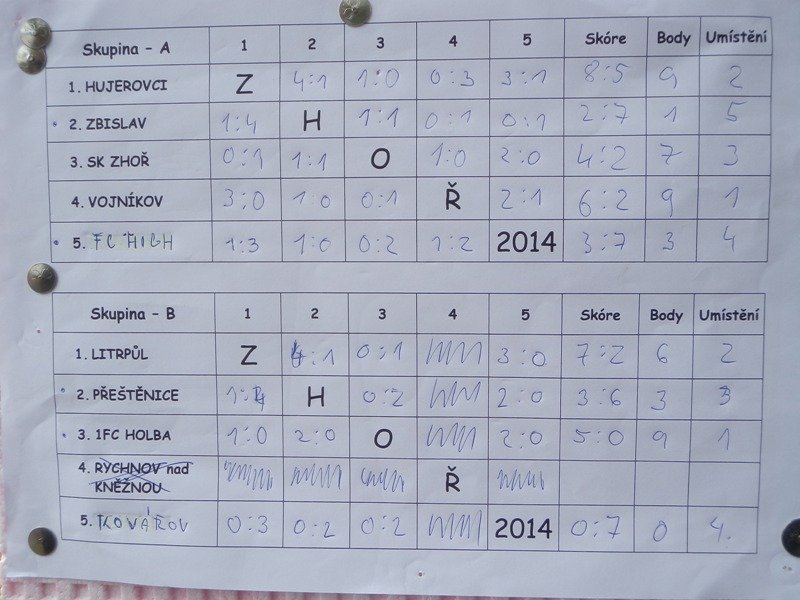 Skupina - A 1 2 3 4 5 Skóre Body Umístění
1. HUJEROVCI Z 4:1 1:0 0:3 3:1 8:5 9 2
2. ZBISLAV 1:4 H 1:1 0:1 0:1 2:7 1 5
3. SK ZHOŘ 0:1 1:1 O 1:0 2:0 4:2 7 3
4. VOJNÍKOV 3:0 1:0 0:1 Ř 2:1 6:2 9 1
5. FC HIGH 1:3 1:0 0:2 1:2 2014 3:7 3 4
Skupina - B 1 2 3 4 5 Skóre Body Umístění
1. LITRPŮL Z 4:1 0:1 3:0 7:2 6 2
2. PŘEŠTĚNICE 1:4 H 0:2 2:0 3:6 3 3
3. 1FC HOLBA 1:0 2:0 O 2:0 5:0 9 1
4. RYCHNOV nad
KNĚŽNOU Ř
5. KOVÁŘOV 0:3 0:2 0:2 2014 0:7 0 4.